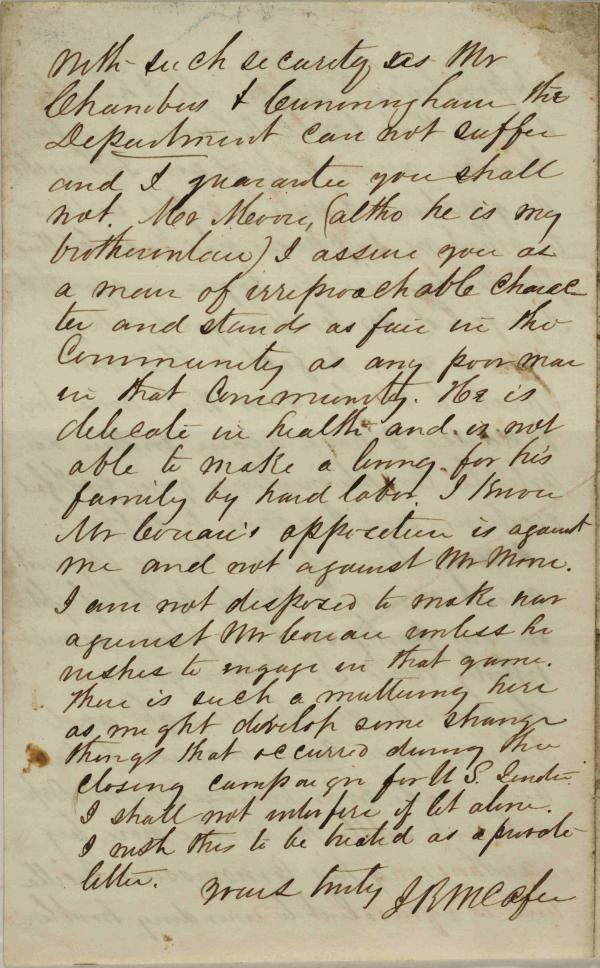 With such security as Mr
Chambers & Cunningham the
Department can not suffer
and I guarantee you shall
not. Mr Moore, (altho he is my
brotherinlaw) I assure you as
a man of irreproachable charac
ter and stands as fair in the
Community as any poor man
in that Community. He is
delicate in health and is not
able to make a living for his
family by hard labor. I know
Mr Cowan's opposition is against
me and not against Mr Moore.
I am not disposed to make war
against Mr Cowan unless he
wishes to engage in that game.
There is such a muttering here
as might develop some strange
things that occurred during the
closing campaign for U S. Senator.
I shall not interfere if let alone.
I wish this to be treated as a private
letter.
Yours truly J R McAfee